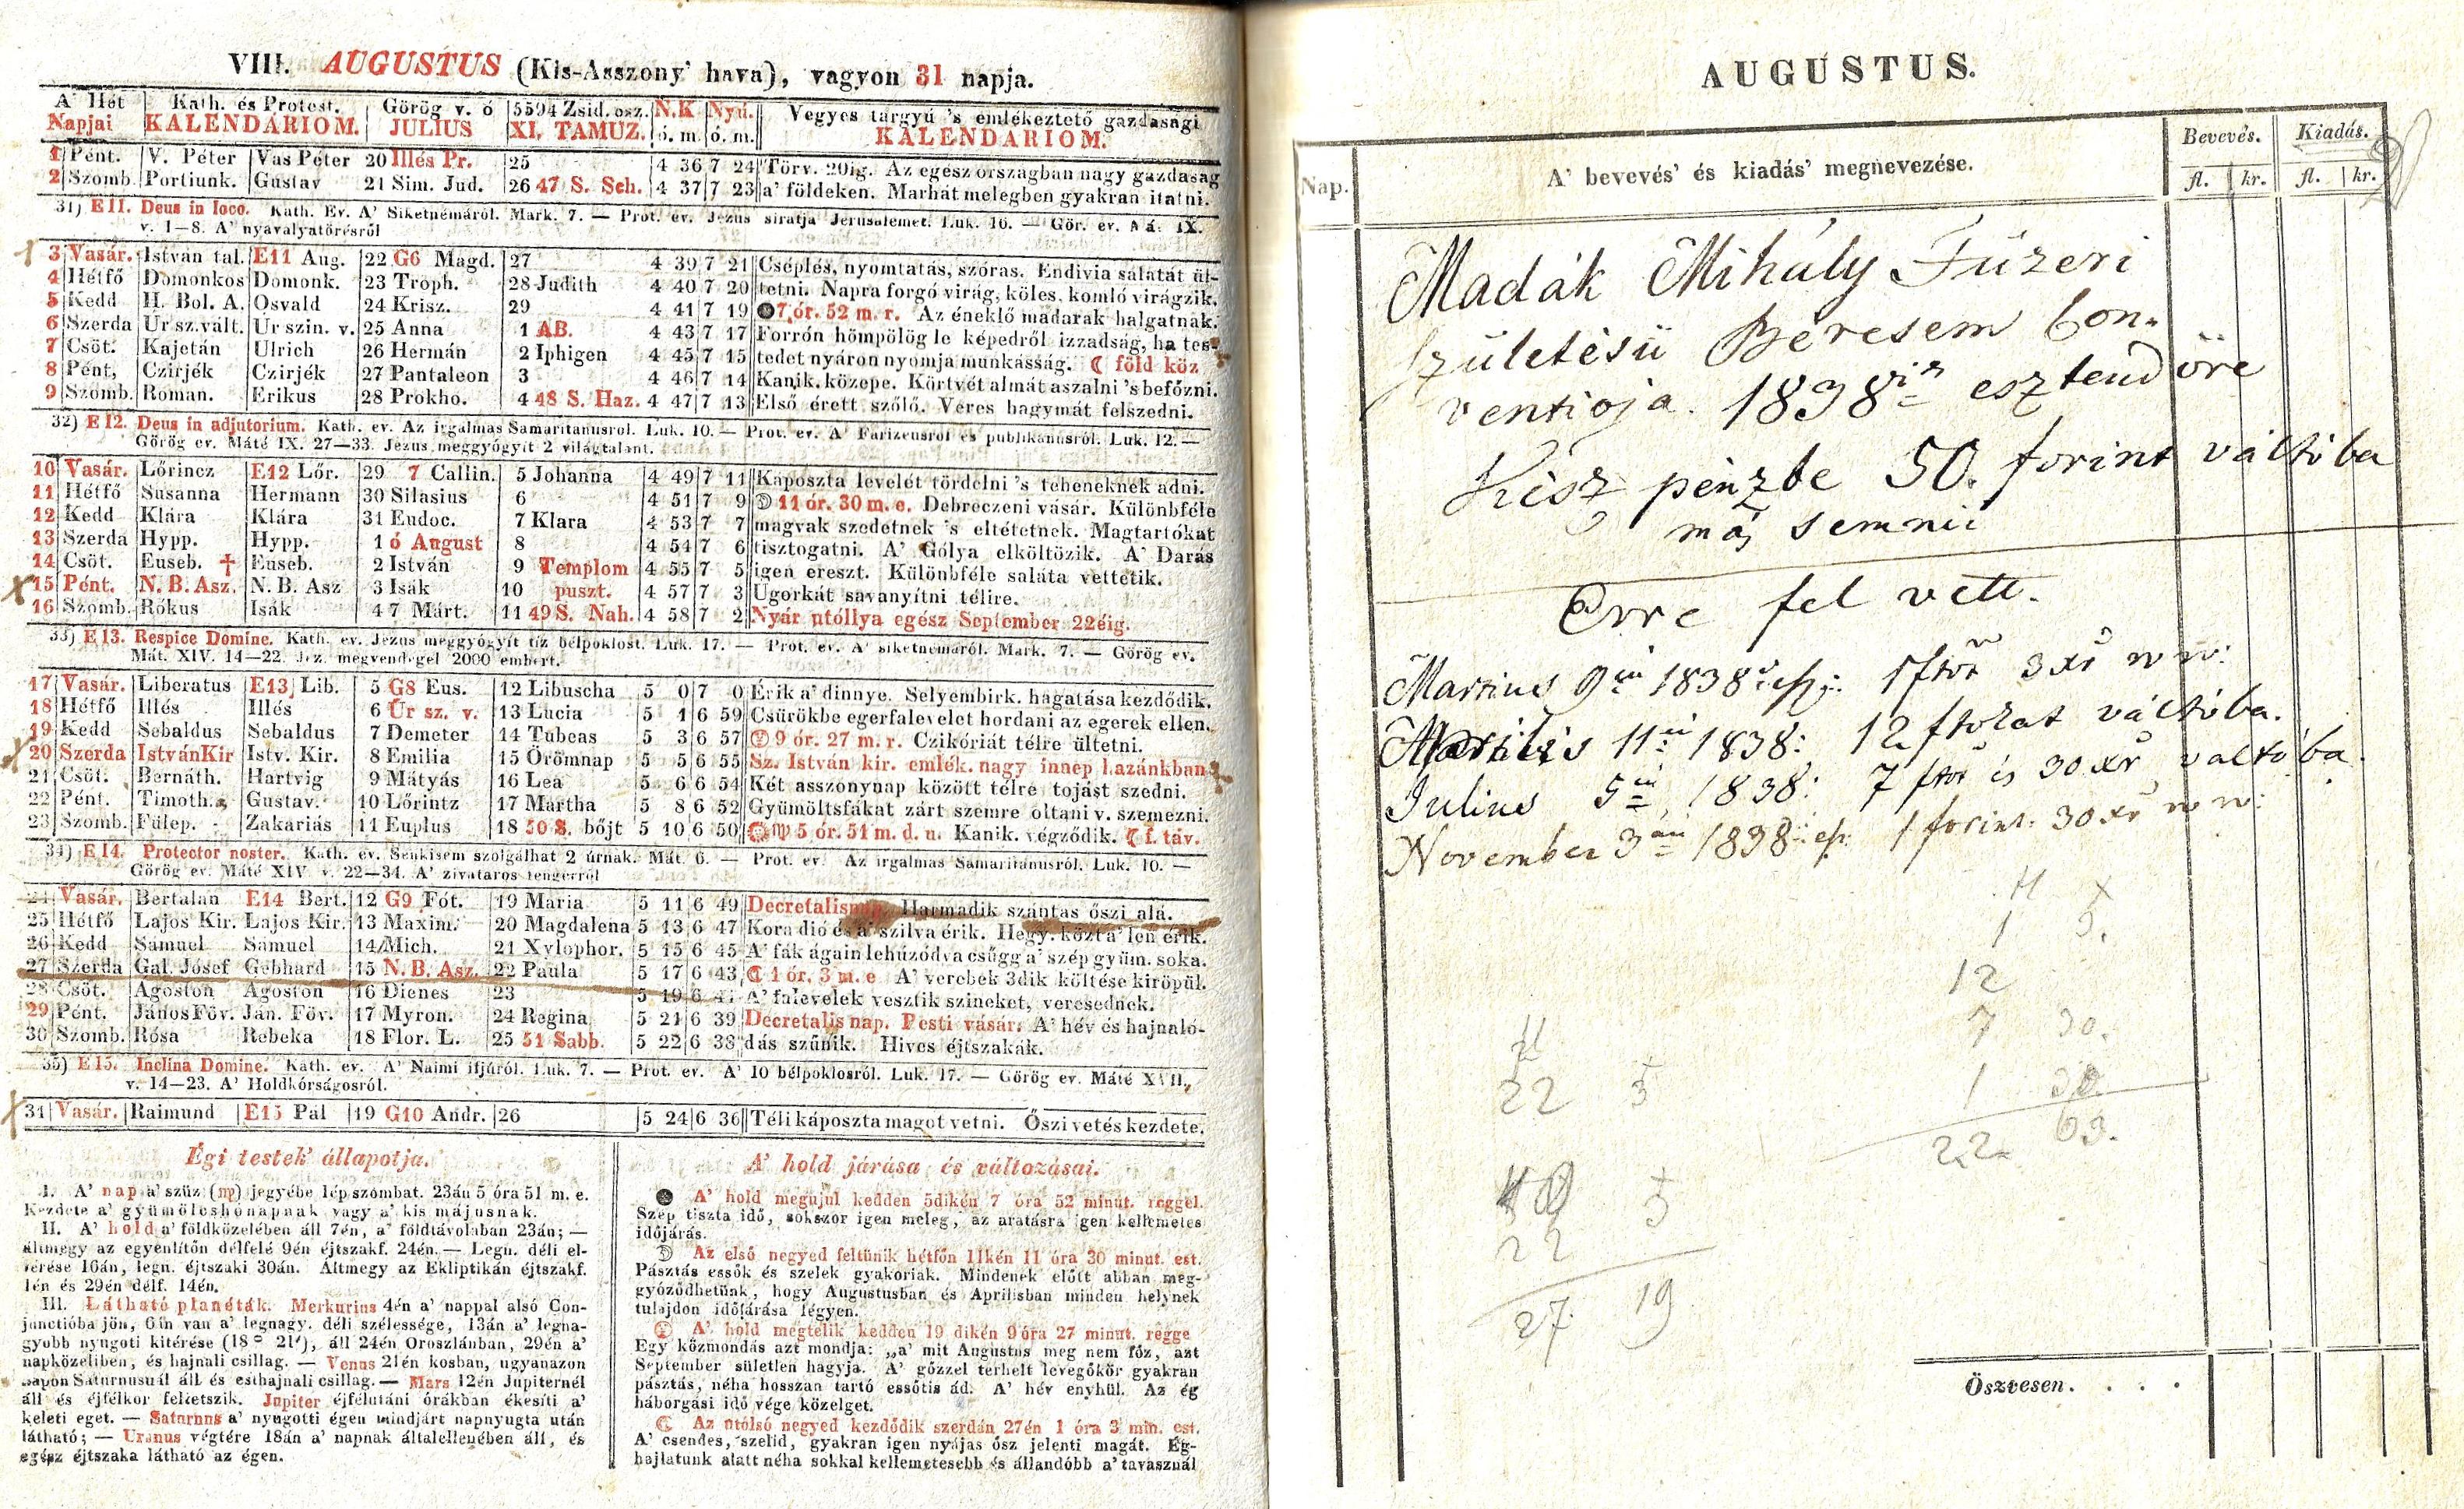 VIII. AUGUSTUS (Kis-Asszony' hava), vagyon 31 napja.
A' Hét | Kath. és Protest. | Görög v. ó | 5594 Zsid. osz. | N.K | Nyu. | Vegyes tárgyú 's emlékeztető gazdasági
Napjai | KALENDÁRIOM. | JULIUS | XI. TAMUZ. | ó. m. | ó. m. | KALENDÁRIOM.
1 Pént. V. Péter Vas Péter 20 Illés Pr. 25 4 36 7 24 Törv. 20ig. Az egész országban nagy gazdaság
2 Szomb. Portiunk. Gustav 21 Sim. Jud. 26 47 S. Sch. 4 37 7 23 a' földeken. Marhát melegben gyakran itatni.
31) E11. Deus in loco. Kath. Ev. A' Siketnémáról. Mark. 7. — Prot. ev. Jézus siratja Jerusalemet. Luk. 16. — Gör. ev. Má. IX.
v. 1—8. A' nyavalyatörésről
3 Vasár. István tal. E11 Aug. 22 G6 Magd. 27 4 39 7 21 Cséplés, nyomtatás, szórás. Endivia salátát ül-
4 Hétfő Domonkos Domonk. 23 Troph. 28 Judith 4 40 7 20 tetni. Napra forgó virág, köles, komló virágzik.
5 Kedd H. Bol. A. Osvald 24 Krisz. 29 4 41 7 19 7 ór. 52 m. r. Az éneklő madarak halgatnak.
6 Szerda Ur sz. vált. Ur szin. v. 25 Anna 1 AB. 4 43 7 17 Forrón hömpölög le képedről izzadság, ha tes-
7 Csöt. Kajetán Ulrich 26 Hermán 2 Iphigen 4 45 7 15 tedet nyáron nyomja munkásság. ☾ föld köz
8 Pént, Czirjék Czirjék 27 Pantaleon 3 4 46 7 14 Kanik. közepe. Körtvét almát aszalni 's befőzni.
9 Szomb. Roman. Erikus 28 Prokho. 4 48 S. Haz. 4 47 7 13 Első érett szőlő. Veres hagymát felszedni.
32) E12. Deus in adjutorium. Kath. ev. Az irgalmas Samaritánusról. Luk. 10. — Prot. ev. A' Farizeusról és publikánusról. Luk. 12. —
Görög ev. Máté IX. 27—33. Jézus meggyógyít 2 világtalant.
10 Vasár. Lőrincz E12 Lőr. 29 7 Callin. 5 Johanna 4 49 7 11 Káposzta levelét tördelni 's teheneknek adni.
11 Hétfő Susanna Hermann 30 Silasius 6 4 51 7 9 ☽ 11 ór. 30 m. e. Debreczeni vásár. Különbféle
12 Kedd Klára Klára 31 Eudoc. 7 Klara 4 53 7 7 magvak szedetnek 's eltétetnek. Magtartókat
13 Szerda Hypp. Hypp. 1 ó August 8 4 54 7 6 tisztogatni. A' Gólya elköltözik. A' Darás
14 Csöt. Euseb. † Euseb. 2 István 9 Templom 4 55 7 5 igen ereszt. Különbféle saláta vettetik.
15 Pént. N. B. Asz. N. B. Asz 3 Isák 10 puszt. 4 57 7 3 Ugorkát savanyítni télire.
16 Szomb. Rókus Isák 4 7 Márt. 11 49 S. Nah. 4 58 7 2 Nyár utóllya egész September 22éig.
33) E13. Respice Domine. Kath. ev. Jézus meggyógyít tíz bélpoklost. Luk. 17. — Prot. ev. A' siketnémáról. Mark. 7. — Görög ev.
Mát. XIV. 14—22. Jéz. megvendégel 2000 embert.
17 Vasár. Liberatus E13 Lib. 5 G8 Eus. 12 Libuscha 5 0 7 0 Érik a' dinnye. Selyembirk. hágatása kezdődik.
18 Hétfő Illés Illés 6 Ur sz. v. 13 Lucia 5 1 6 59 Csürökbe egerfalevelet hordani az egerek ellen.
19 Kedd Sebaldus Sebaldus 7 Demeter 14 Tubeas 5 3 6 57 9 ór. 27 m. r. Czikóriát télre ültetni.
20 Szerda István Kir Istv. Kir. 8 Emilia 15 Örömnap 5 5 6 55 Sz. István kir. emlék. nagy innep hazánkban
21 Csöt. Bernáth. Hartvig 9 Mátyás 16 Lea 5 6 6 54 Két asszonynap között télre tojást szedni.
22 Pént. Timoth. Gustav. 10 Lőrintz 17 Mártha 5 8 6 52 Gyümöltsfákat zárt szemre oltani v. szemezni.
23 Szomb. Fülep. Zakariás 11 Euplus 18 50 S. bőjt 5 10 6 50 ♍ 5 ór. 51 m. d. u. Kanik. végződik. ☾ f. táv.
34) E14. Protector noster. Kath. ev. Senkisem szolgálhat 2 úrnak. Mát. 6. — Prot. ev. Az irgalmas Samaritánusról. Luk. 10. —
Görög ev. Máté XIV. v. 22—34. A' zivataros tengerről
24 Vasár. Bertalan E14 Bert. 12 G9 Fót. 19 Mária 5 11 6 49 Decretalis nap. Harmadik szántás őszi alá.
25 Hétfő Lajos Kir. Lajos Kir. 13 Maxim. 20 Magdalena 5 13 6 47 Kora dió és a' szilva érik. Hegy. közt a' len érik.
26 Kedd Sámuel Sámuel 14 Mich. 21 Xylophor. 5 15 6 45 A' fák ágain lehúzódva csügg a' szép gyüm. soka.
27 Szerda Gal. Jósef Gebhard 15 N. B. Asz. 22 Paula 5 17 6 43 ☾ 1 ór. 3 m. e A' verebek 3dik költése kiröpül.
28 Csöt. Ágoston Ágoston 16 Dienes 23 5 19 6 41 A' falevelek vesztik szineket, veresednek.
29 Pént. János Föv. Ján. Föv. 17 Myron. 24 Regina 5 21 6 39 Decretalis nap. Pesti vásár. A' hév és hajnaló-
30 Szomb. Rósa Rebeka 18 Flor. L. 25 51 Sabb. 5 22 6 38 dás szűnik. Hives éjtszakák.
35) E15. Inclina Domine. Kath. ev. A' Naimi ifjúról. Luk. 7. — Prot. ev. A' 10 bélpoklosról. Luk. 17. — Görög ev. Máté XVII.
v. 14—23. A' Holdkórságosról.
31 Vasár. Raimund E15 Pál 19 G10 Andr. 26 5 24 6 36 Téli káposzta magot vetni. Őszi vetés kezdete.
Égi testek' állapotja.
I. A' nap a' szüz (♍) jegyébe lép szombat. 23án 5 óra 51 m. e.
Kezdete a' gyümölcshónapnak vagy a' kis májusnak.
II. A' hold a' földközelében áll 7én, a' földtávolában 23án; —
áltmegy az egyenlítőn délfelé 9én éjtszakf. 24én. — Legn. déli el-
térése 16án, legn. éjtszaki 30án. Áltmegy az Ekliptikán éjtszakf.
1én és 29én délf. 14én.
III. Látható planéták. Merkurius 4én a' nappal alsó Con-
junctióba jön, 6án van a' legnagy. déli szélessége, 13án a' legna-
gyobb nyugoti kitérése (18° 21'), áll 24én Oroszlánban, 29én a'
napközeliben, és hajnali csillag. — Venus 21én kosban, ugyanazon
napon Saturnusnál áll és esthajnali csillag. — Mars 12én Jupiternél
áll és éjfélkor feltetszik. Jupiter éjfélutáni órákban ékesíti a'
keleti eget. — Saturnus a' nyugotti égen mindjárt napnyugta után
látható; — Uranus végtére 18án a' napnak általellenében áll, és
egész éjtszaka látható az égen.
A' hold járása és változásai.
A' hold megujul kedden 5dikén 7 óra 52 minut. reggel.
Szép tiszta idő, sokszor igen meleg, az aratásra igen kellemetes
időjárás.
☽ Az első negyed feltünik hétfőn 11kén 11 óra 30 minut. est.
Pásztás essők és szelek gyakoriak. Mindenek előtt abban meg-
győződhetünk, hogy Augustusban és Aprilisban minden helynek
tulajdon időjárása légyen.
A' hold megtelik kedden 19 dikén 9 óra 27 minut. regge
Egy közmondás azt mondja: „a' mit Augustus meg nem főz, azt
September sületlen hagyja. A' gőzzel terhelt levegőkör gyakran
pásztás, néha hosszan tartó essőtis ád. A' hév enyhül. Az ég
háborgási idő vége közelget.
☾ Az utólsó negyed kezdődik szerdán 27én 1 óra 3 min. est.
A' csendes, szelid, gyakran igen nyájas ősz jelenti magát. Ég-
hajlatunk alatt néha sokkal kellemetesebb és állandóbb a' tavasznál
AUGUSTUS.
Nap. | A' bevevés' és kiadás' megnevezése. | Bevevés. | Kiadás.
fl. | kr. | fl. | kr.
Madák Mihály Füzeri
születésü Béresem Con-
ventioja. 1838ik esztendőre
Kész pénzbe 50. forint váltóba
más semmi
Erre fel vett.
Martius 9én 1838 1 ftot 3 xr
11én 1838: 12 ftokat váltóba.
Julius 5én 1838: 7 ftot és 30 xr váltóba.
November 3án 1838 1 forint. 30 xr
1 3.
12
7 30.
1 30.
22 63.
22 3
22
27. 19
Öszvesen. . . .